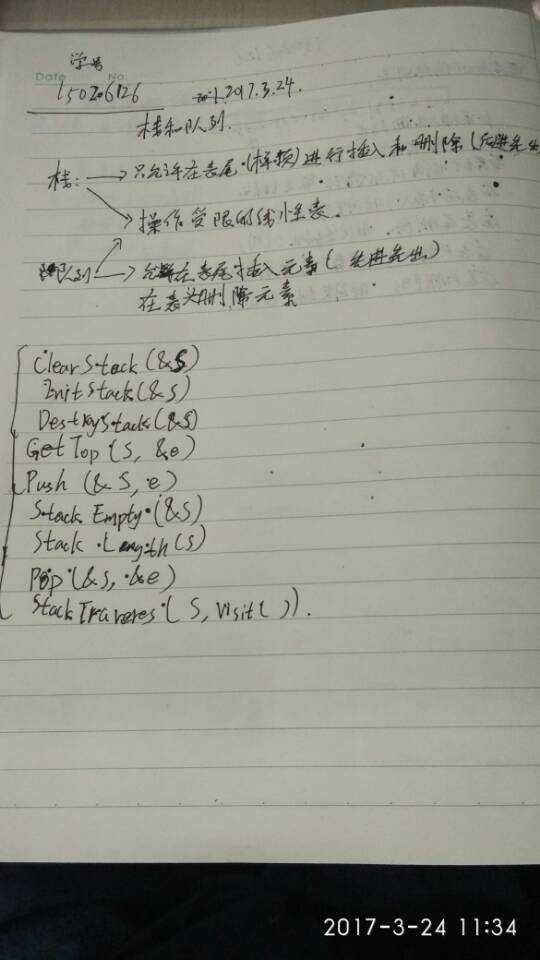 学号
Date No.
15026126 2017.3.24.
栈和队列.
栈: 只允许在表尾(栈顶)进行插入和删除(后进先出
操作受限的线性表.
队列 允许在表尾插入元素(先进先出)
在表头删除元素
ClearStack(&S)
InitStack(&S)
DestryStack(&S)
GetTop(S, &e)
Push (&S, e)
Stack Empty(&S)
Stack Length(S)
Pop(&S, &e)
StackTraveres(S, Visit( )).
2017-3-24 11:34